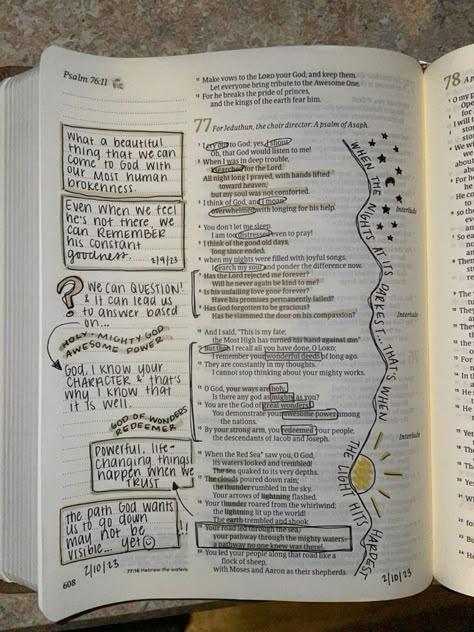 Psalm 76:11
11 Make vows to the LORD your God, and keep them.
Let everyone bring tribute to the Awesome One.
12 For he breaks the pride of princes,
and the kings of the earth fear him.
77 For Jeduthun, the choir director: A psalm of Asaph.
1 I cry out to God; yes, I shout.
Oh, that God would listen to me!
2 When I was in deep trouble,
I searched for the Lord.
All night long I prayed, with hands lifted
toward heaven,
but my soul was not comforted.
3 I think of God, and I moan,
overwhelmed with longing for his help.
Interlude
4 You don't let me sleep.
I am too distressed even to pray!
5 I think of the good old days,
long since ended,
6 when my nights were filled with joyful songs.
I search my soul and ponder the difference now.
7 Has the Lord rejected me forever?
Will he never again be kind to me?
8 Is his unfailing love gone forever?
Have his promises permanently failed?
9 Has God forgotten to be gracious?
Has he slammed the door on his compassion?
Interlude
10 And I said, "This is my fate;
the Most High has turned his hand against me"
11 But then I recall all you have done, O LORD;
I remember your wonderful deeds of long ago.
12 They are constantly in my thoughts.
I cannot stop thinking about your mighty works.
13 O God, your ways are holy.
Is there any god as mighty as you?
14 You are the God of great wonders!
You demonstrate your awesome power among
the nations.
15 By your strong arm, you redeemed your people,
the descendants of Jacob and Joseph.
Interlude
16 When the Red Sea* saw you, O God,
its waters looked and trembled!
The sea quaked to its very depths.
17 The clouds poured down rain;
the thunder rumbled in the sky.
Your arrows of lightning flashed.
18 Your thunder roared from the whirlwind;
the lightning lit up the world!
The earth trembled and shook.
19 Your road led through the sea,
your pathway through the mighty waters—
a pathway no one knew was there!
20 You led your people along that road like a
flock of sheep,
with Moses and Aaron as their shepherds.
What a beautiful
thing that we can
come to God with
our most human
brokenness.
Even when we feel
he's not there, we
can REMEMBER
his constant
goodness.
2/9/23
? we can QUESTION!
& it can lead us
to answer based
on...
HOLY. MIGHTY GOD
AWESOME POWER
God, I know your
CHARACTER & that's
why I know that
it is well.
GOD OF WONDERS
REDEEMER
Powerful, life-
changing things
happen when we
TRUST
the path God wants
us to go down
may not be
visible... yet
2/10/23
WHEN THE NIGHT IS AT ITS DARKEST... THAT'S WHEN
THE LIGHT HITS HARDEST
2/10/23
77:16 Hebrew the waters.
608
78